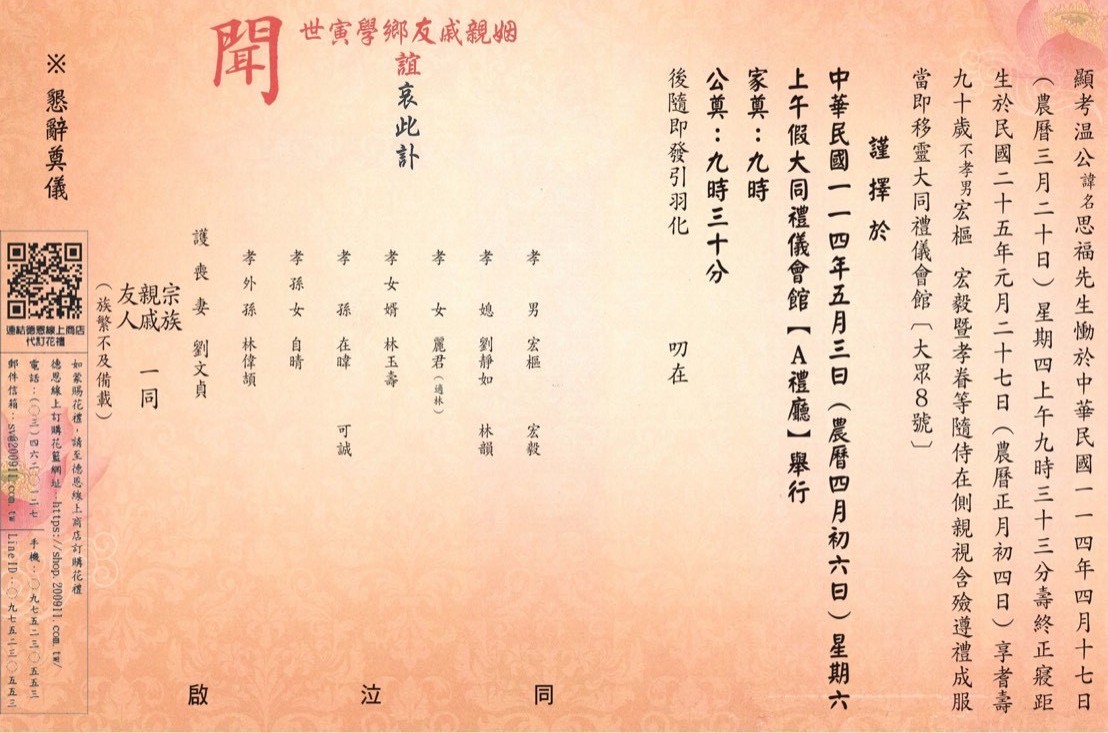 顯考温公諱名思福先生慟於中華民國一一四年四月十七日
（農曆三月二十日）星期四上午九時三十三分壽終正寢距
生於民國二十五年元月二十七日（農曆正月初四日）享耆壽
九十歲不孝男宏樞　宏毅暨孝眷等隨侍在側親視含殮遵禮成服
當即移靈大同禮儀會館〔大眾8號〕
謹擇於
中華民國一一四年五月三日（農曆四月初六日）星期六
上午假大同禮儀會館【A禮廳】舉行
家奠：九時
公奠：九時三十分
後隨即發引羽化　叨在
姻親戚友鄉學寅世
誼
哀此訃
聞
孝男　宏樞　宏毅
孝媳　劉靜如　林韻
孝女　麗君（適林）
孝女婿　林玉壽
孝孫　在暐　可誠
孝孫女　自晴
孝外孫　林偉頡
護喪妻　劉文貞
宗族
親戚　一同
友人
（族繁不及備載）
同泣啟
※懇辭奠儀
連結德恩線上商店
代訂花禮
如蒙賜花禮，請至德恩線上商店訂購花禮
德恩線上訂購花籃網址：https://shop.200911.com.tw/
電話：（〇三）四六二〇一二七　手機：〇九七五二三〇五五三
郵件信箱：sv@200911.com.tw　LineID：〇九七五二三〇五五三